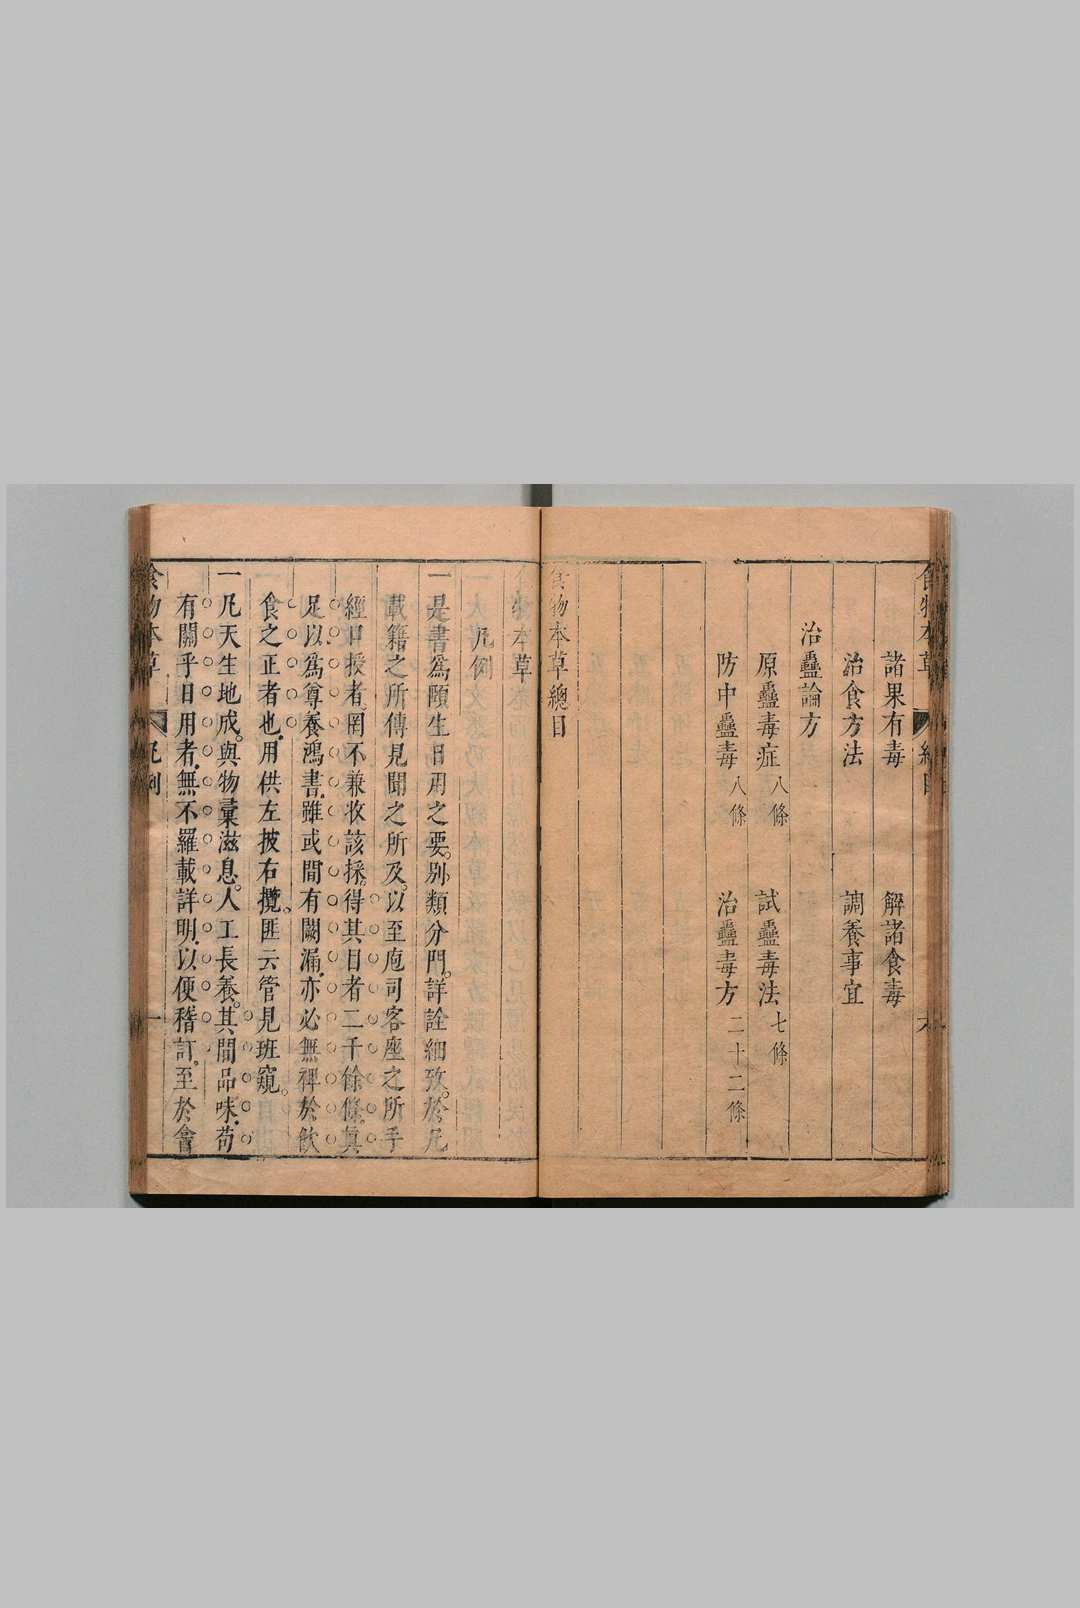 食物本草 總目 六
諸果有毒 解諸食毒
治食方法 調養事宜
治蠱論方
原蠱毒症八條 試蠱毒法七條
防中蠱毒八條 治蠱毒方二十二條
食物本草總目
食物本草
凡例
一是書爲頤生日用之要。別類分門。詳詮細攷。於凡
載籍之所傳見聞之所及。以至庖司客座之所手
經口授者。罔不兼收該採。得其目者二千餘條。眞
足以爲尊養鴻書。雖或間有闕漏。亦必無裨於飲
食之正者也。用供左披右攬。匪云管見班窺。
一凡天生地成。與物彙滋息。人工長養。其間品味。苟
有關乎日用者。無不羅載詳明。以便稽訂。至於會
食物本草 凡例 一